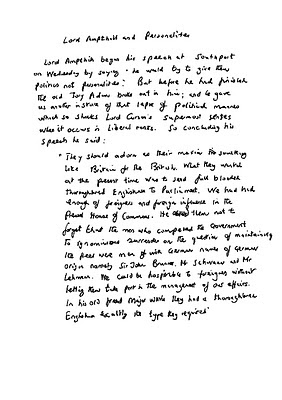 Lord Ampthill and Personalities
Lord Ampthill began his speech at Southport
on Wednesday by saying "he would try to give them
politics not personalities". But before he had finished
the old Tory Adam broke out in him; and he gave
us another instance of that lapse of political manners
which so shocks Lord Curzon's supermost senses
when it occurs in Liberal ranks. So concluding his
speech he said:
"They should adorn as their maxim something
like Britain for the British. What they wanted
at the present time was to send full blooded
thoroughbred Englishmen to Parliament. We have had
enough of foreigners and foreign influence in the
House of Commons. He them not to
forget that the men who compelled the Government
to ignominious surrender on the question of maintaining
the fleet were men with German names of German
origin namely Sir John Brunner, Mr Schwann and Mr
Lehmann. We could be hospitable to foreigners without
letting them take part in the management of our affairs.
In his old friend Major White they had a thoroughbred
Englishman exactly the type they required"